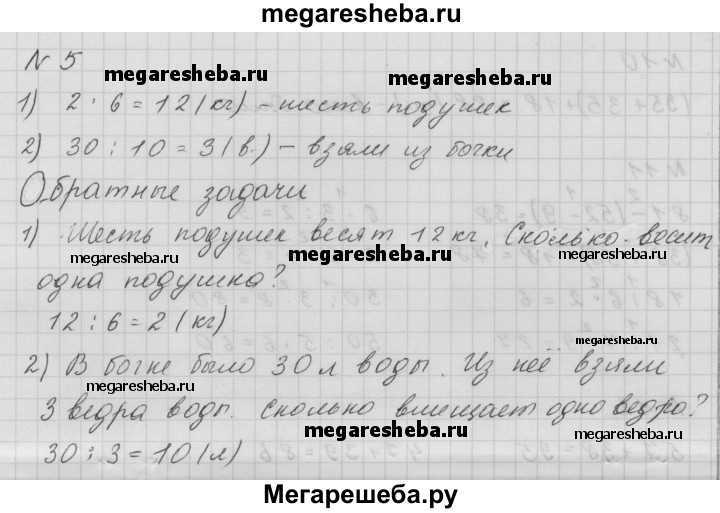 megaresheba.ru
№ 5
megaresheba.ru
1) 2 · 6 = 12 (кг) – шесть подушек
2) 30 : 10 = 3 (в.) – взяли из бочки
megaresheba.ru
megaresheba.ru
Обратные задачи
1) Шесть подушек весят 12 кг. Сколько весит
megaresheba.ru
megaresheba.ru
megaresheba.ru
одна подушка?
12 : 6 = 2 (кг)
megaresheba.ru
2) В бочке было 30 л воды. Из неё взяли
megaresheba.ru
megaresheba.ru
3 ведра воды. Сколько вмещает одно ведро?
megaresheba.ru
megaresheba.ru
30 : 3 = 10 (л)
Мегарешеба.ру